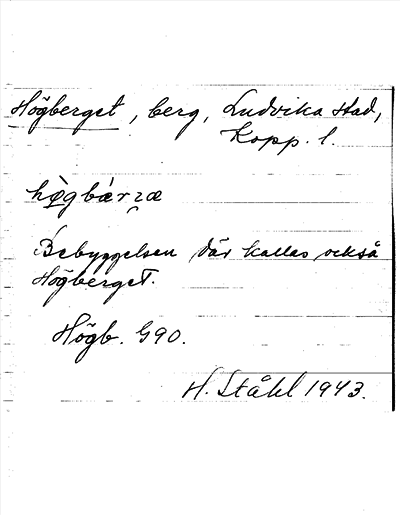 Högberget, berg, Ludvika stad,
Kopp. l.
hø̀gbær̀ʒæ
Bebyggelsen där kallas också
Högberget.
Högb. G90.
H. Ståhl 1943.